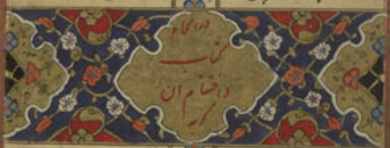 در انجام
کتاب
و اختتام آن
گوید